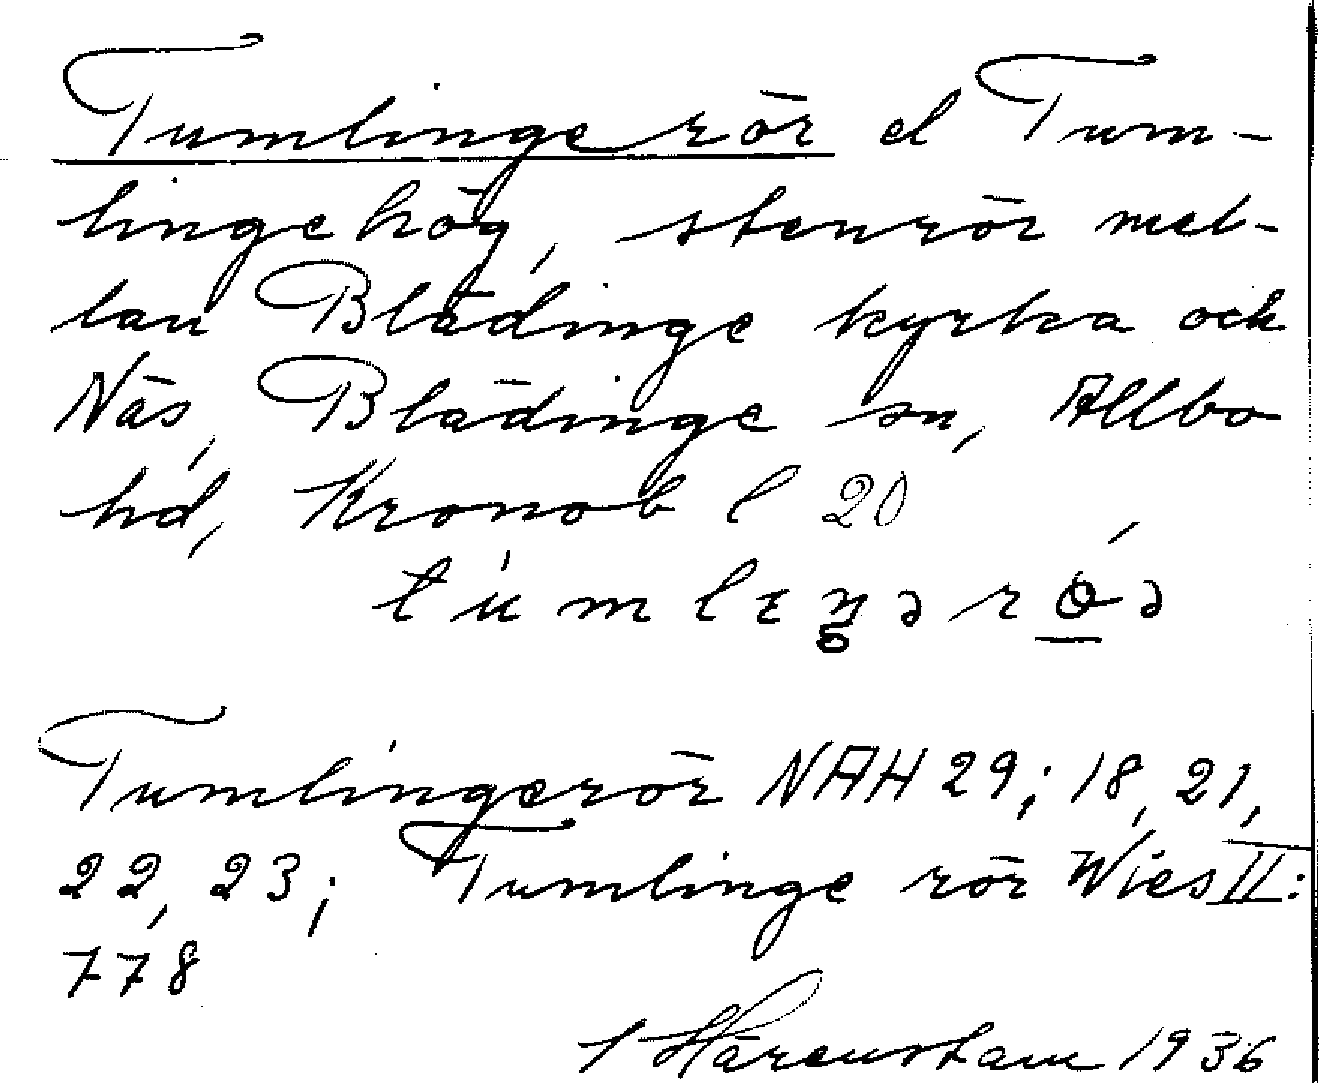 Tumlingerör el Tum-
lingehög, stenrör mel-
lan Blädinge kyrka och
Näs, Blädinge sn, Allbo
hd, Kronob l 20
Tumlingerör NAH 29; 18, 21,
22, 23; Tumlinge rör Wies II:
778
Härenstam 1936